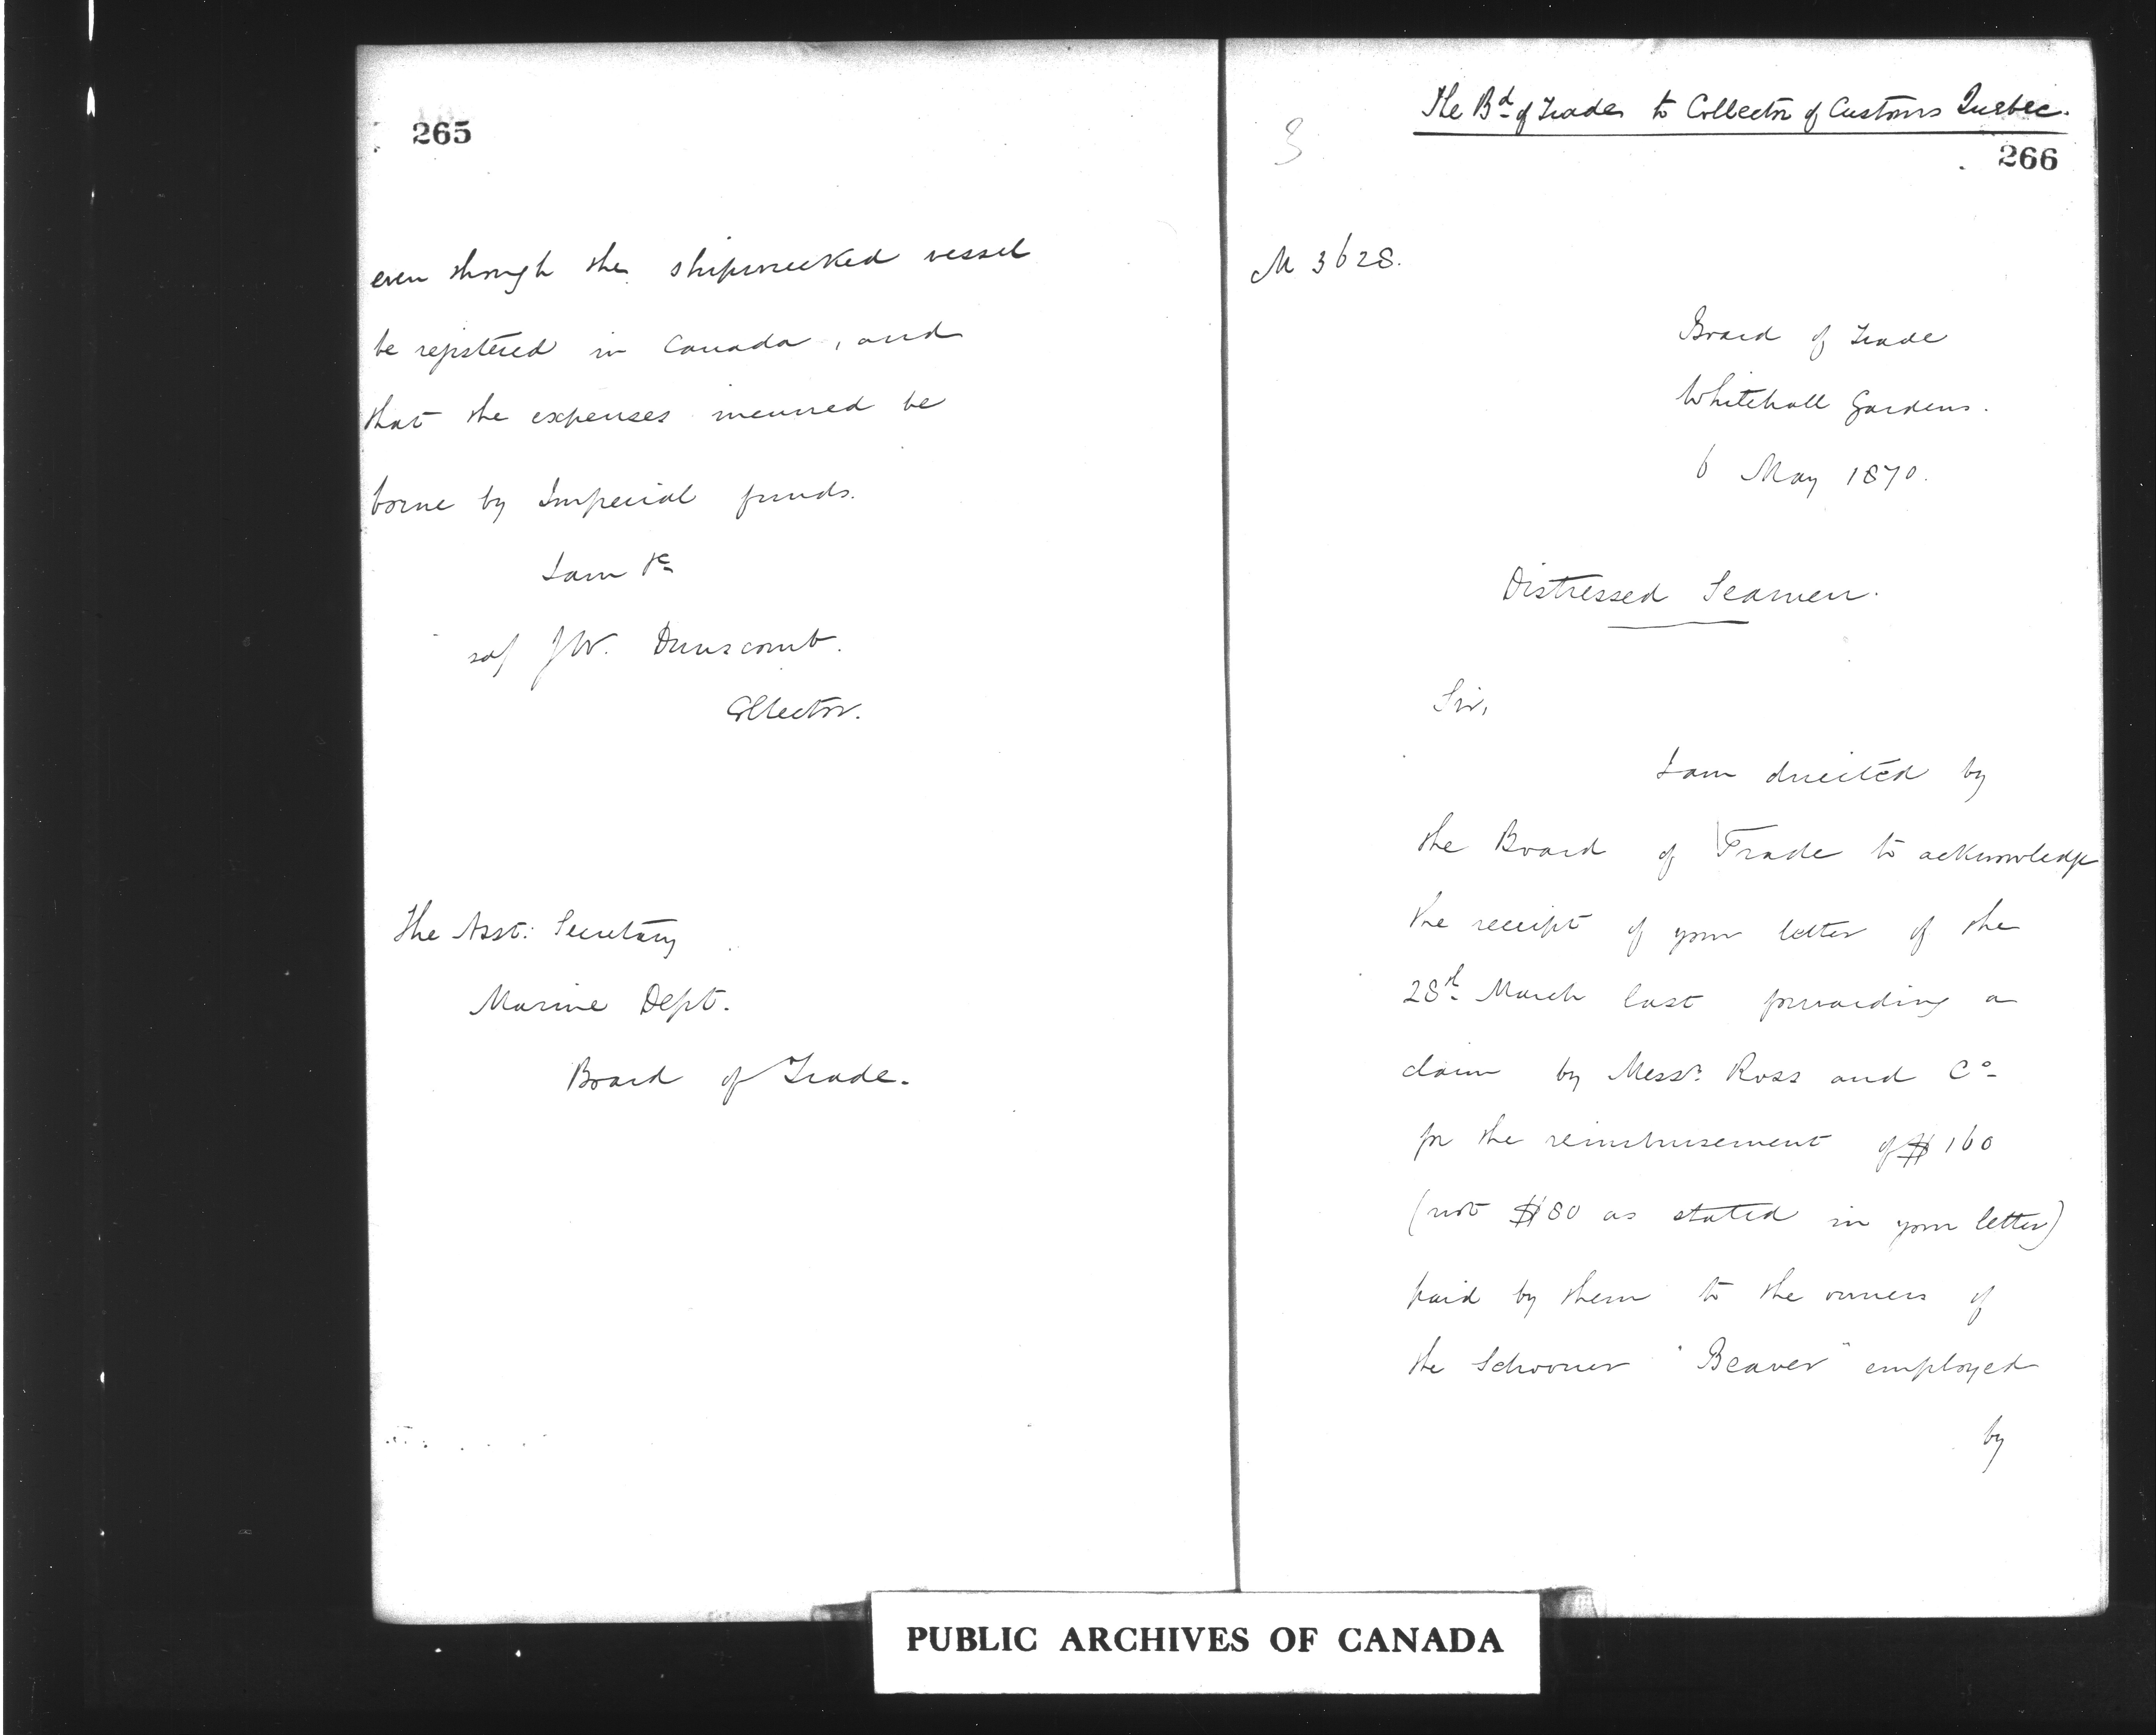 265
even though the shipwrecked vessel
be registered in Canada, and
that the expenses incurred be
borne by Imperial funds.
I am &c
sd/ J.W. Dunscomb.
Collector.
The Asst: Secretary
Marine Dept.
Board of Trade.
3
The Bd of Trade to Collector of Customs Quebec.
266
M 3628.
Board of Trade
Whitehall Gardens.
6 May 1870.
Distressed Seamen.
Sir,
I am directed by
the Board of Trade to acknowledge
the receipt of your letter of the
28th March last forwarding a
claim by Messrs Ross and Co
for the reimbursement of $160
(not $80 as stated in your letter)
paid by them to the owners of
the Schooner "Beaver" employed
by
PUBLIC ARCHIVES OF CANADA